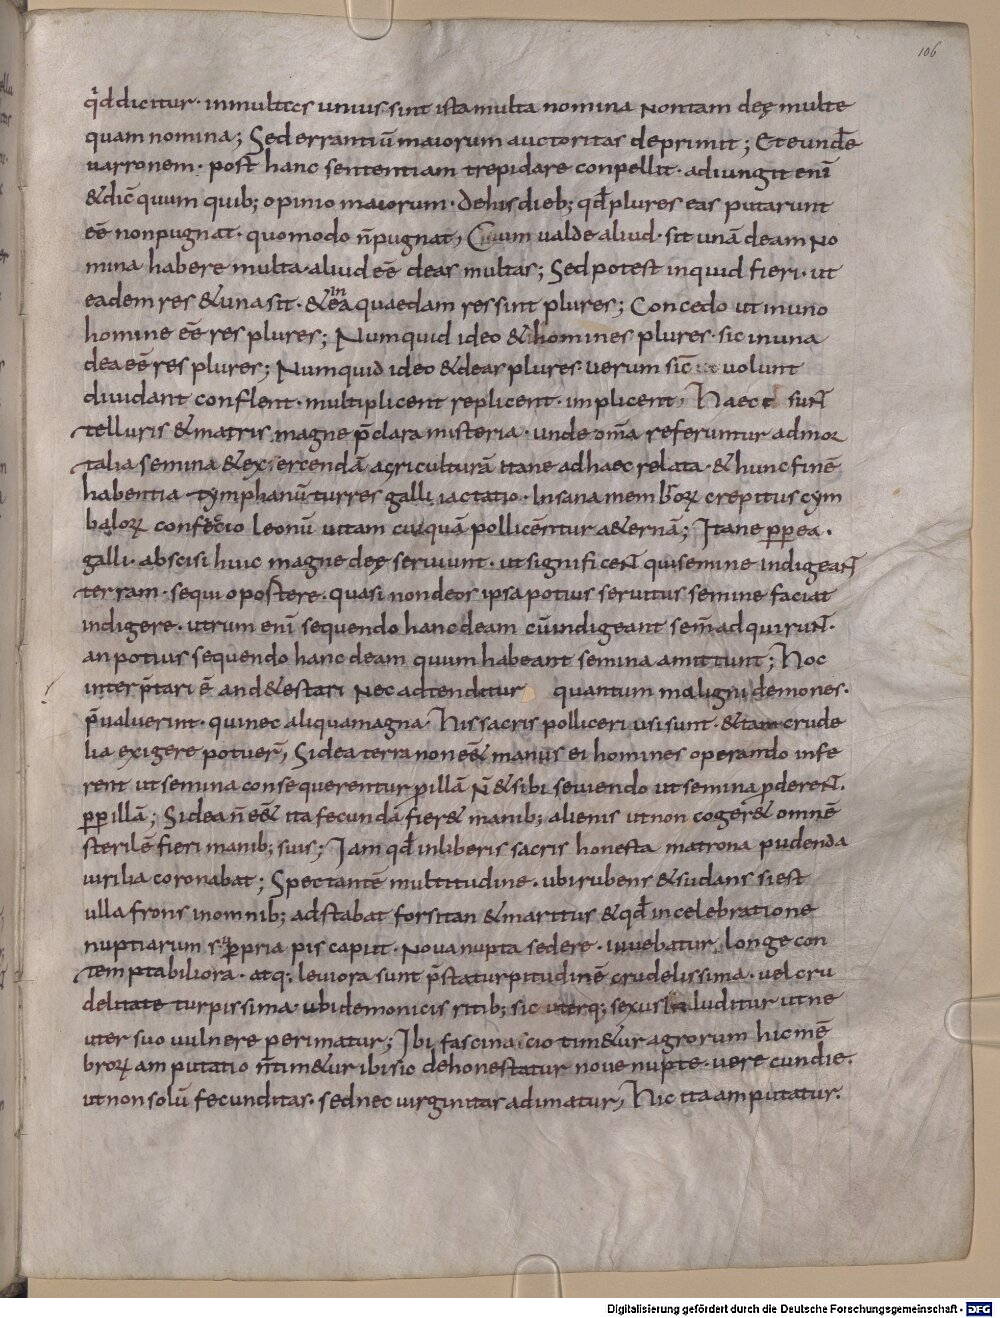 106
qd dicitur· inmultes unius sint ista multa nomina Nontam deę multe
quam nomina; Sed errantiū maiorum auctoritas deprimit; Et eundē
uarronem· post hanc sententiam trepidare conpellit· adiungit enī
& dic̄ quum quib; opinio maiorum· dehis dieb; qđ plures eas putarunt
eē nonpugnat· quomodo n̄ pugnat, Cum ualde aliud· sit unā deam No
mina habere multa· aliud eē deas multas; Sed potest inquid fieri· ut
eadem res & una sit· & in ea quaedam res sint plures; Concedo ut inuno
homine eē res plures; Numquid ideo & homines plures· sic inuna
dea eē res plures; Numquid ideo & deas plures· uerum sic̄ uolunt
diuidant conflent· multiplicent replicent· implicent, Haec suÑ
telluris & matris magne p̄clara misteria· unde om̄a referuntur admor
talia semina & exercendā agriculturā Itane ad haec relata· & hunc finē
habentia tymphanū turres galli iactatio· Insana membrorꝝ crepitus cym
balorꝝ confectio leonū uitam cuiquā pollicēntur a&ernā; Itane ꝑꝑea·
galli· abscisi huic magne deę seruiunt· ut significeÑ qui semine indigeaÑ
terram· sequi opostere· quasi non deos ipsa potius seruitus semine faciat
indigere· utrum enī sequendo hanc deam cū indigeant sem̄ adquiruÑ·
an potius sequendo hanc deam quum habeant semina amittunt; Hoc
interp̄tari ē and&estari Nec adtenditur quantum maligni demones·
p̄ualuerint· qui nec aliqua magna· His sacris polliceri usi sunt· & tam crude
lia exigere potuer̄, Si dea terra non eē& manus ei homines operando infe
rent ut semina consequerentur ꝑillā N̄ & sibi seuiendo ut semina ꝑdereÑ·
ꝑꝑillā; Si dea n̄ eē& ita fecunda fier& manib; alienis ut non coger& omnē
sterilē fieri manib; suis; Iam qđ inliberis sacris honesta matrona pudenda
uirilia coronabat; Spectantē multitudine· ubi rubens & sudans si est
ulla frons inomnib; adstabat forsitan & maritus & qđ incelebratione
nuptiarum sup p̱ropria pis caput· Noua nupta sedere· iuuebatur, longe con
temptabiliora· atq; leuiora sunt p̄sta turpitudinē crudelissima· uel cru
delitate turpissima· ubi demonicis ritib; sic uterq; sexus luditur ut ne
uter suo uulnere perimatur; Ibi fascinascio tim&ur agrorum hic mē
brorꝝ amputatio n̄ tim&ur ibi sio dehonestatur noue nupte· uere cundie·
ut non solū fecunditas· sed nec uirginitas adimatur, Hic ita amputatur·
Digitalisierung gefördert durch die Deutsche Forschungsgemeinschaft - DFG